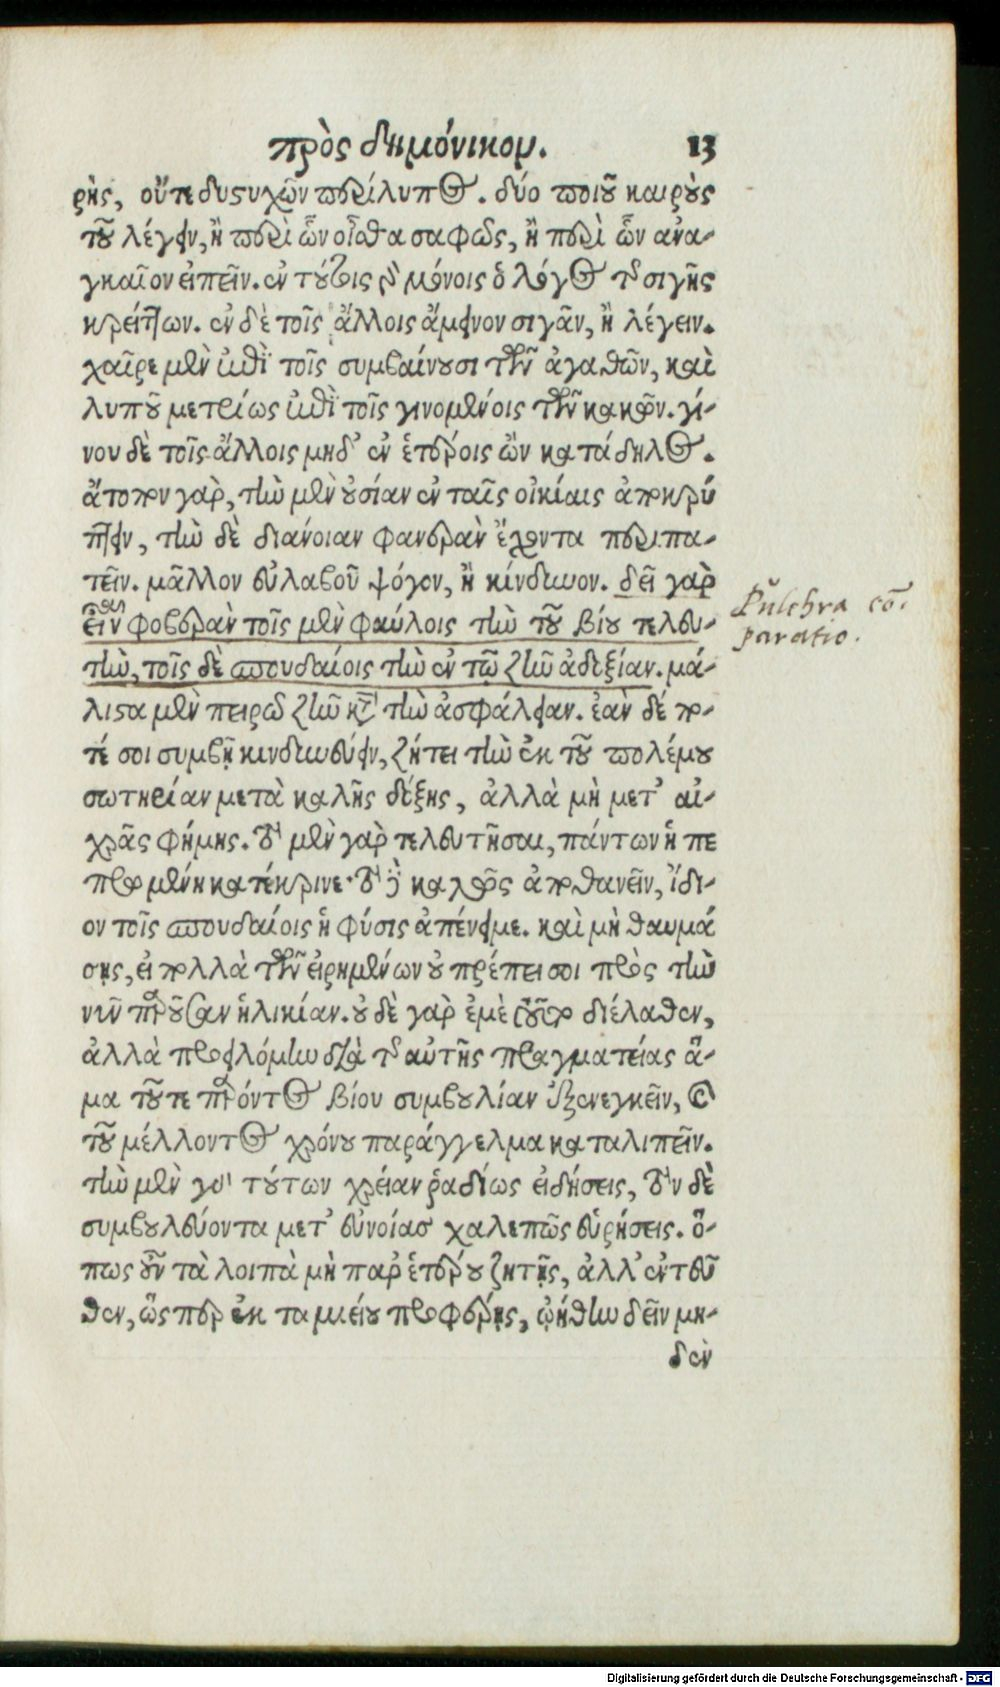 πρὸς δημόνικον. 13
ρὴς, οὔτε δυστυχῶν περίλυπος. δύο ποιοῦ καιροὺς
τοῦ λέγειν, ἢ περὶ ὧν οἶσθα σαφῶς, ἢ περὶ ὧν ἀνα-
γκαῖον εἰπεῖν. ἐν τούτοις γὸ μόνοις ὁ λόγος τῆς σιγῆς
κρείττων. ἐν δὲ τοῖς ἄλλοις ἄμεινον σιγᾶν, ἢ λέγειν.
χαῖρε μὲν ἐπὶ τοῖς συμβαίνουσι τῶν ἀγαθῶν, καὶ
λυποῦ μετρίως ἐπὶ τοῖς γινομένοις τῶν κακῶν. γί-
νου δὲ τοῖς ἄλλοις μηδ᾽ ἐν ἑτέροις ὢν κατάδηλος.
ἄτοπον γὰρ, τὴν μὲν οὐσίαν ἐν ταῖς οἰκίαις ἀποκρύ
πτειν, τὴν δὲ διάνοιαν φανερὰν ἔχοντα περιπα-
τεῖν. μᾶλλον εὐλαβοῦ ψόγον, ἢ κίνδυνον. δεῖ γὰρ
εἶναι φοβερὰν τοῖς μὲν φαύλοις τὴν τοῦ βίου τελευ-
τὴν, τοῖς δὲ σπουδαίοις τὴν ἐν τῷ ζῆν ἀδοξίαν. μά-
λιστα μὲν πειρῶ ζῆν κατὰ τὴν ἀσφάλειαν. ἐὰν δέ πο-
τέ σοι συμβῇ κινδυνεύειν, ζήτει τὴν ἐκ τοῦ πολέμου
σωτηρίαν μετὰ καλῆς δόξης, ἀλλὰ μὴ μετ᾽ αἰ-
χρᾶς φήμης. τὸ μὲν γὰρ τελευτῆσαι, πάντων ἡ πε
πρωμένη κατέκρινε· τὸ δὲ καλῶς ἀποθανεῖν, ἴδι-
ον τοῖς σπουδαίοις ἡ φύσις ἀπένειμε. καὶ μὴ θαυμά
σῃς, εἰ πολλὰ τῶν εἰρημένων οὐ πρέπει σοι πρὸς τὴν
νῦν παροῦσαν ἡλικίαν. οὐδὲ γὰρ ἐμὲ τοῦτο διέλαθεν,
ἀλλὰ προειλόμην διὰ τῆς αὐτῆς πραγματείας ἅ-
μα τοῦ τε παρόντος βίου συμβουλίαν ἐξενεγκεῖν, καὶ
τοῦ μέλλοντος χρόνου παράγγελμα καταλιπεῖν.
τὴν μὲν γὸ τούτων χρείαν ῥᾳδίως εἰδήσεις, τὸν δὲ
συμβουλεύοντα μετ᾽ εὐνοίας χαλεπῶς εὑρήσεις. ὅ-
πως οὖν τὰ λοιπὰ μὴ παρ᾽ ἑτέρου ζητῇς, ἀλλ᾽ ἐντεῦ
θεν, ὥσπερ ἐκ ταμιείου προφέρῃς, ᾠήθην δεῖν μη-
δὲν
Pŭlchra cō-
paratio.
Digitalisierung gefördert durch die Deutsche Forschungsgemeinschaft - DFG